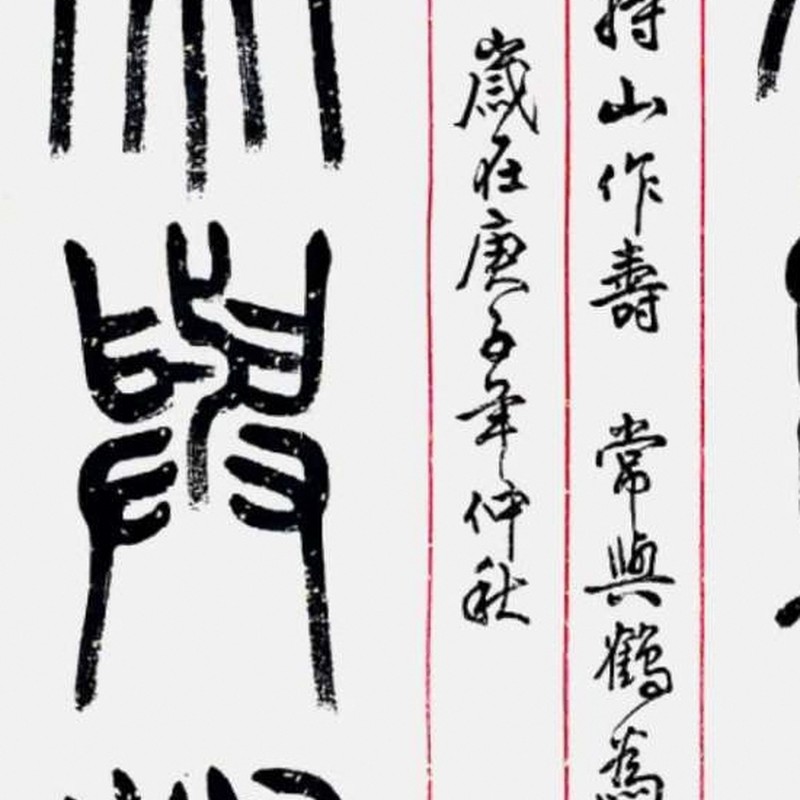 持山作壽 常與鶴為
歲在庚子年仲秋
與